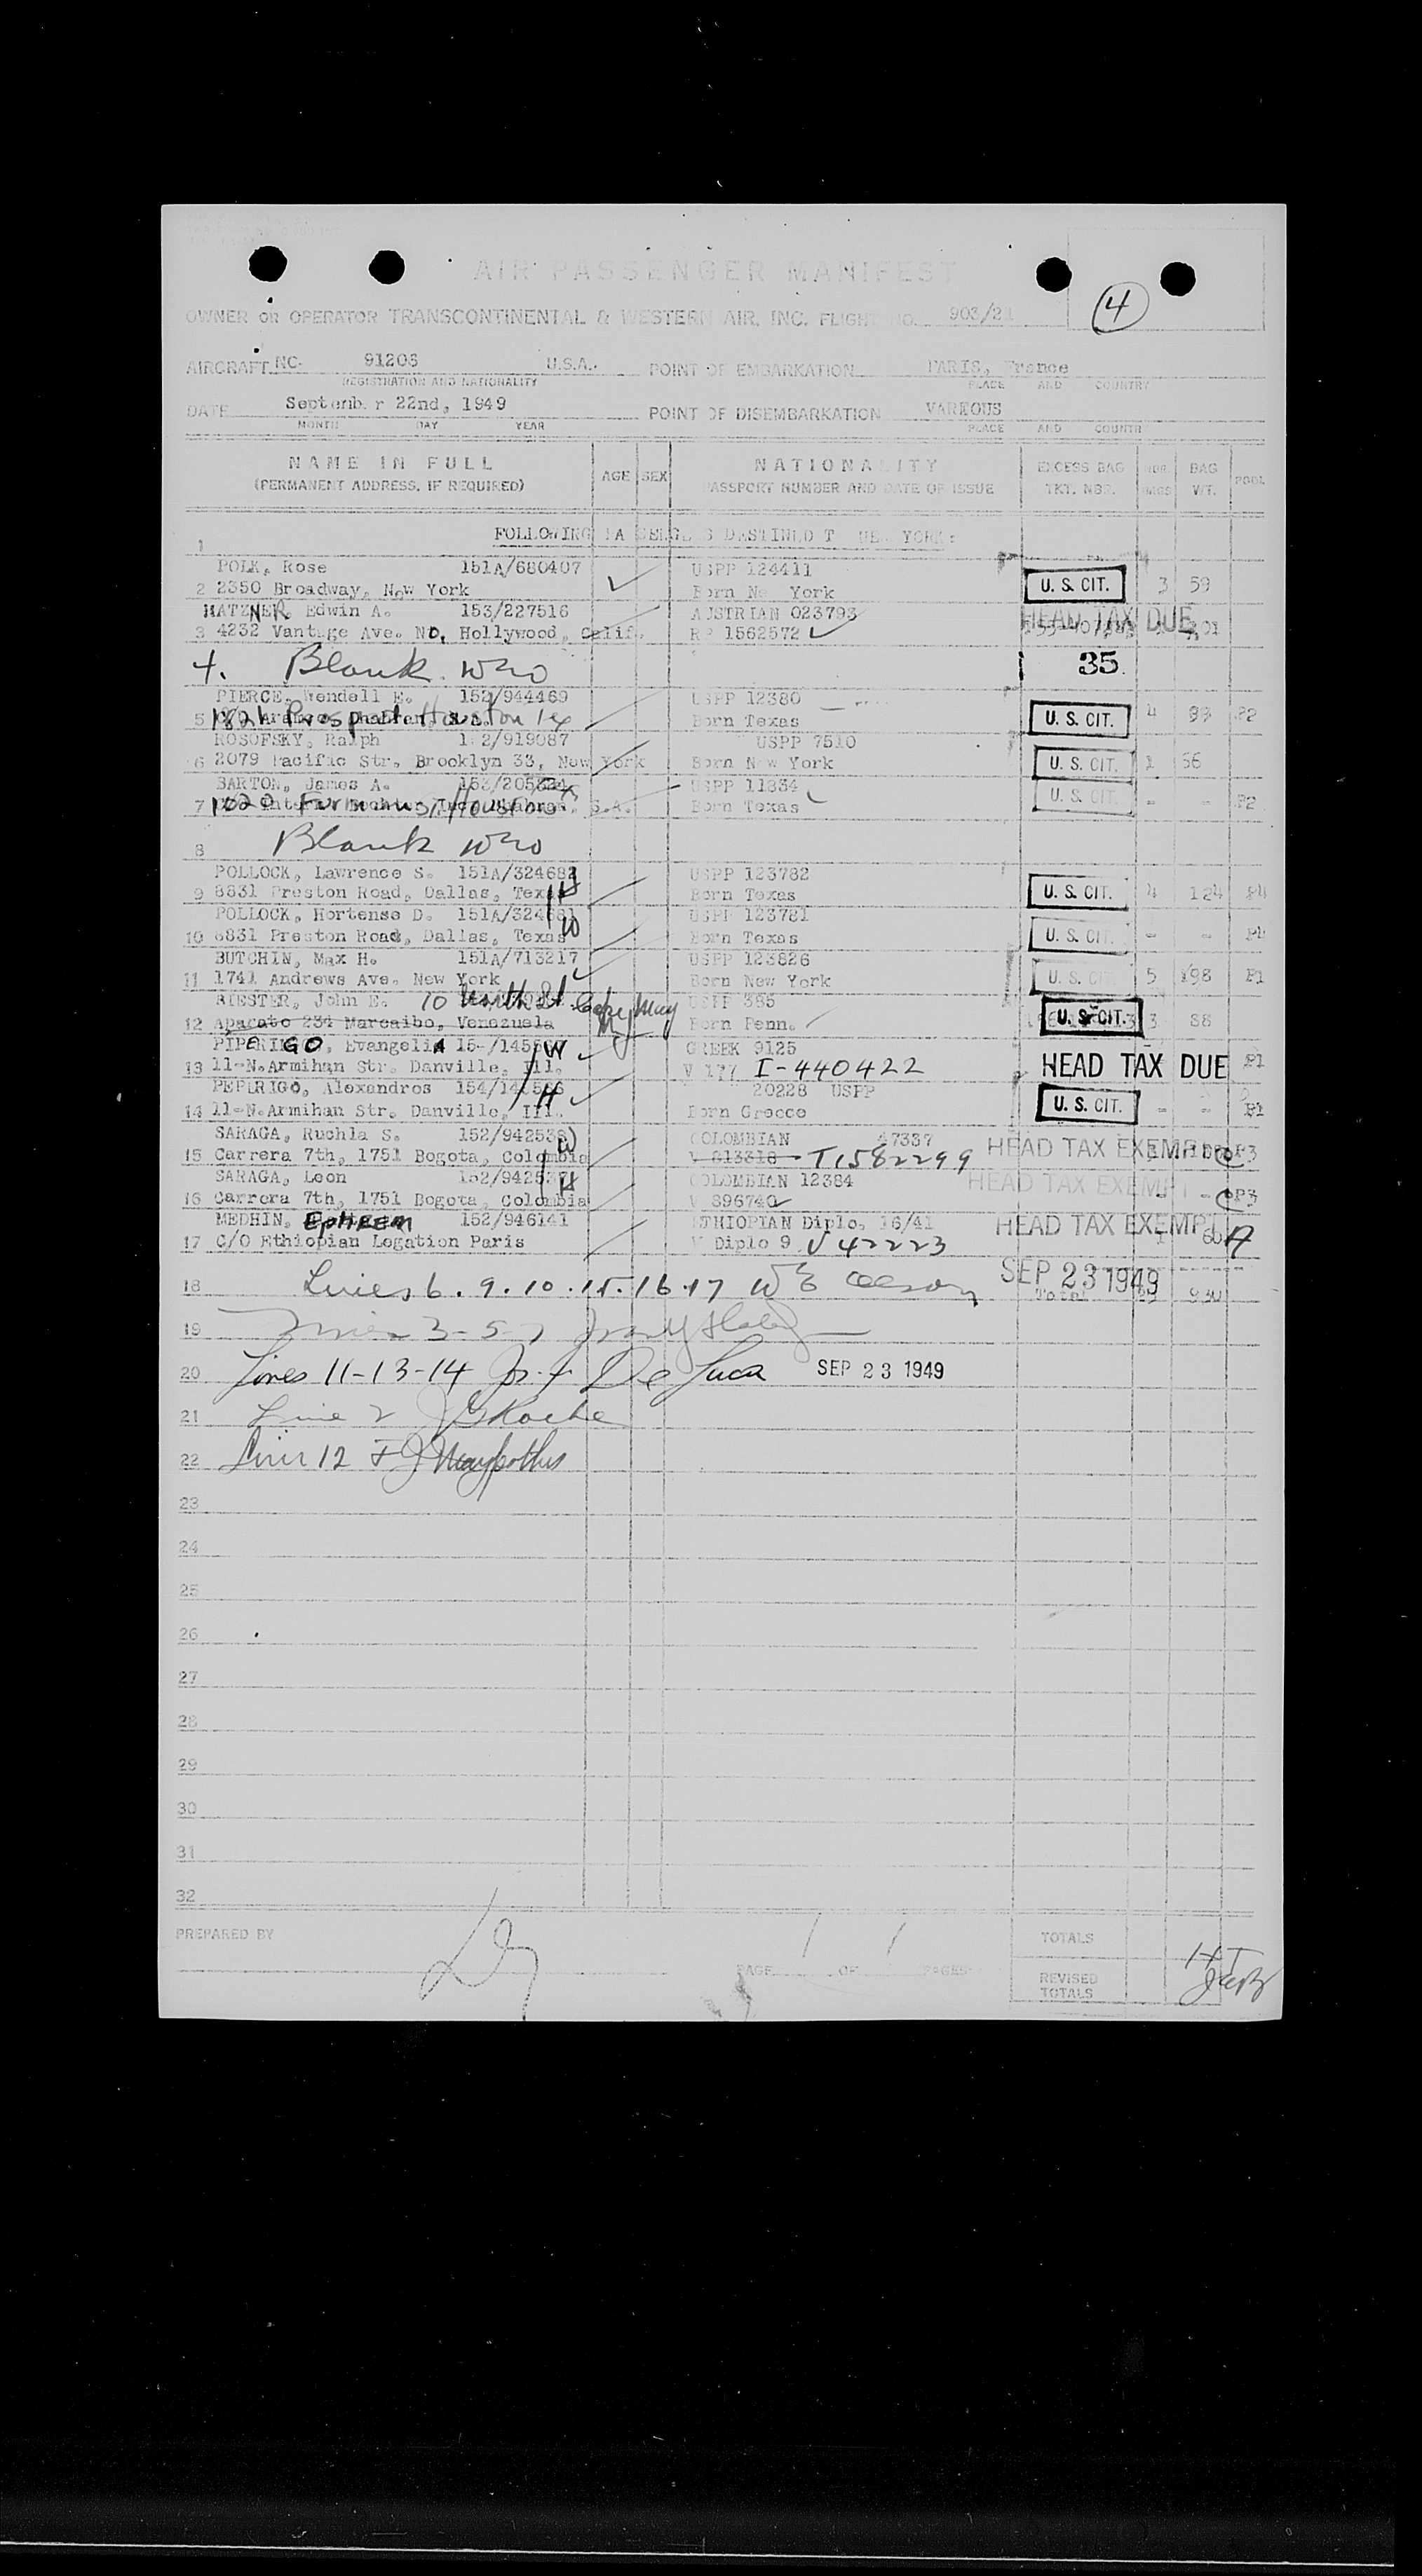 AIR PASSENGER MANIFEST
4
OWNER OR OPERATOR TRANSCONTINENTAL & WESTERN AIR, INC. FLIGHT NO. 903/21
AIRCRAFT NC- 91206 U.S.A. POINT OF EMBARKATION PARIS, France
REGISTRATION AND NATIONALITY PLACE AND COUNTRY
DATE September 22nd, 1949 POINT OF DISEMBARKATION VARIOUS
MONTH DAY YEAR PLACE AND COUNTR
NAME IN FULL AGE SEX NATIONALITY EXCESS BAG NBR. BAG POOL
(PERMANENT ADDRESS, IF REQUIRED) PASSPORT NUMBER AND DATE OF ISSUE TKT. NBR. WT.
1 FOLLOWING PASSENGERS DESTINED TO NEW YORK:
POLK, Rose 151A/680407 USPP 124411
2 2350 Broadway, New York Born New York U. S. CIT. 3 59
HATZNER, Edwin A. 153/227516 AUSTRIAN 023793 HEAD TAX DUE
3 4232 Vantage Ave. NO, Hollywood, Calif. RP 1562572
4. Blank 35.
PIERCE, Wendell E. 152/944469 USPP 12380
5 Prospect Houston Tex Born Texas U. S. CIT. 4 93 P2
ROSOFSKY, Ralph 152/919087 USPP 7510
6 2079 Pacific Str, Brooklyn 33, New York Born New York U. S. CIT. 1 56
BARTON, James A. USPP 11834
7 Houston S.A. Born Texas U. S. CIT. - - P2
8 Blank
POLLOCK, Lawrence S. 151A/324682 USPP 123782
9 8831 Preston Road, Dallas, Texas H Born Texas U. S. CIT. 4 124 P4
POLLOCK, Hortense D. 151A/324681 USPP 123781
10 6831 Preston Road, Dallas, Texas W Born Texas U. S. CIT. - - P4
BUTCHIN, Max H. 151A/713217 USPP 123826
11 1741 Andrews Ave. New York Born New York U. S. CIT. 5 198 P1
RIESTER, John E. 10 St. Cape May USPP 385
12 Apacato 234 Marcaibo, Venezuela Born Penn. U. S. CIT. 3 88
PIPERIGO, Evangelia W GREEK 9125
13 11-N.Armihan Str. Danville, Ill. V 177 I-440422 HEAD TAX DUE P1
PEPERIGO, Alexandros H 20228 USPP
14 11-N.Armihan Str. Danville, Ill. Born Greece U. S. CIT. - - P1
SARAGA, Ruchla S. 152/942538 W COLOMBIAN 47337
15 Carrera 7th, 1751 Bogota, Colombia V 813318 T1582299 HEAD TAX EXEMPT P3
SARAGA, Leon 152/942537 H COLOMBIAN 12384 HEAD TAX EXEMPT
16 Carrera 7th, 1751 Bogota, Colombia V 896740 - P3
MEDHIN, EPHREM 152/946141 ETHIOPIAN Diplo, 16/41 HEAD TAX EXEMPT
17 C/O Ethiopian Legation Paris V Diplo 9 V 42223 A
18 Lines 6. 9. 10. 15. 16. 17 SEP 23 1949
Total 930
19 3-5-7
20 Lines 11-13-14 De Luca SEP 23 1949
21 Line 2 Roche
22 Line 12
23
24
25
26
27
28
29
30
31
32
PREPARED BY TOTALS
PAGE 1 OF 1 PAGES
REVISED
TOTALS